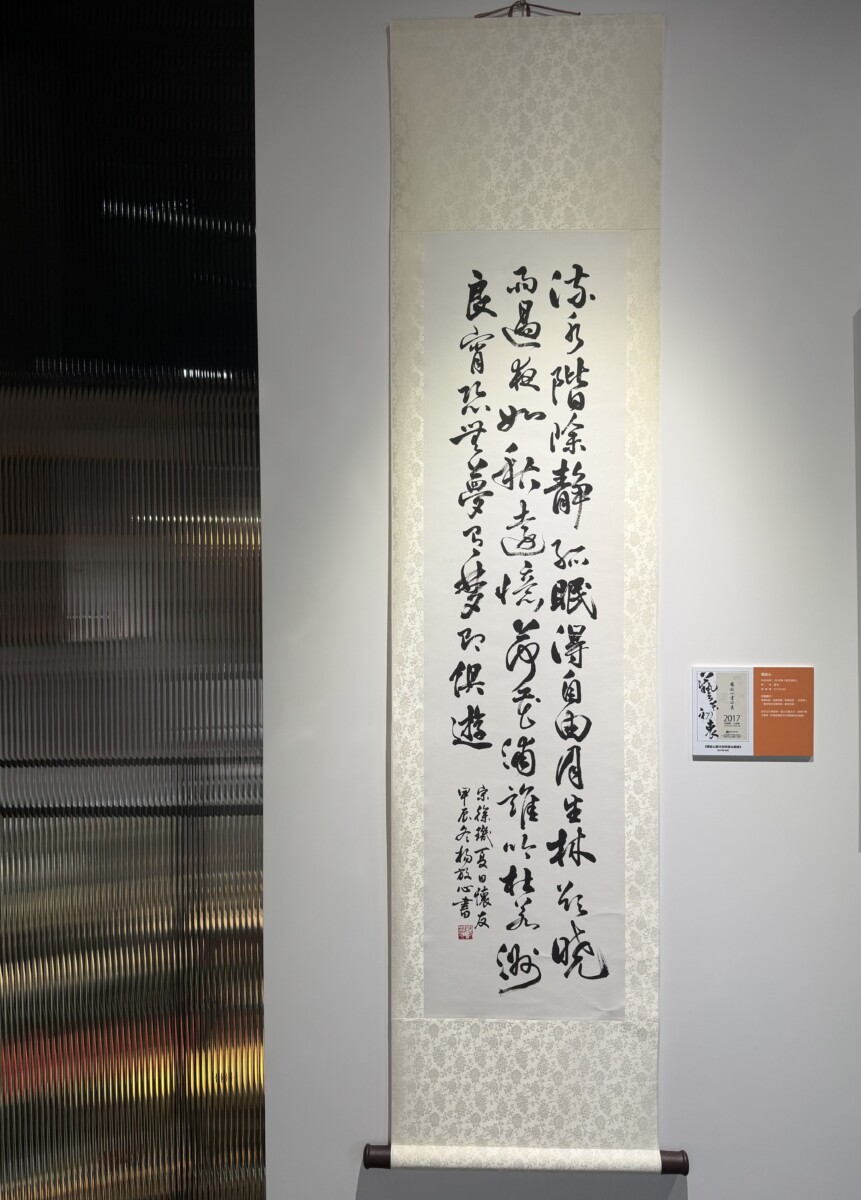 流水階除静孤眠得自由月生林欲晓
雨過夜如秋遠憶荷花浦誰吟杜若洲
良宵恐無夢有梦即俱遊
宋徐璣夏日懷友
甲辰冬杨放心書
初衷
2017